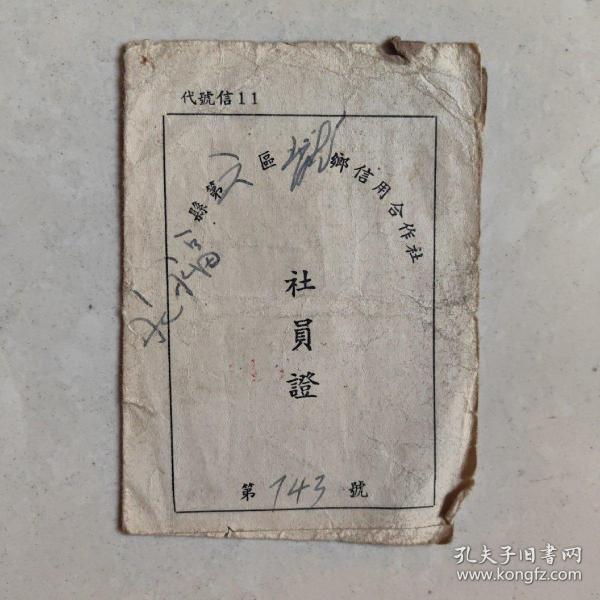 代號信11
永福縣第六區鄉信用合作社
社員證
第743號
孔夫子旧书网
www.kongfz.com